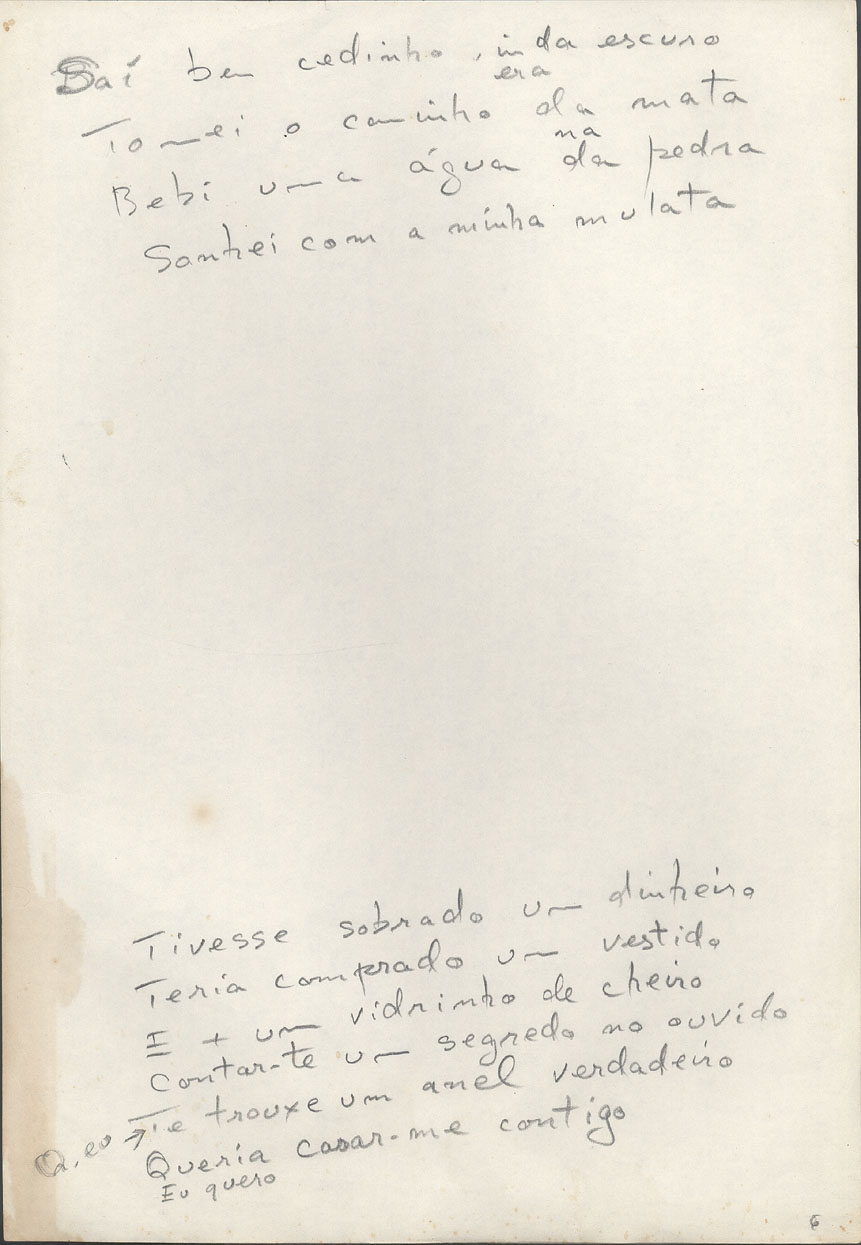 Saí bem cedinho, inda escuro
era
Tomei o caminho da mata
na
Bebi uma água da pedra
Sonhei com a minha mulata
Tivesse sobrado um dinheiro
Teria comprado um vestido
E + um vidrinho de cheiro
Contar-te um segredo no ouvido
Q. eu → Te trouxe um anel verdadeiro
Queria casar-me contigo
Eu quero
6